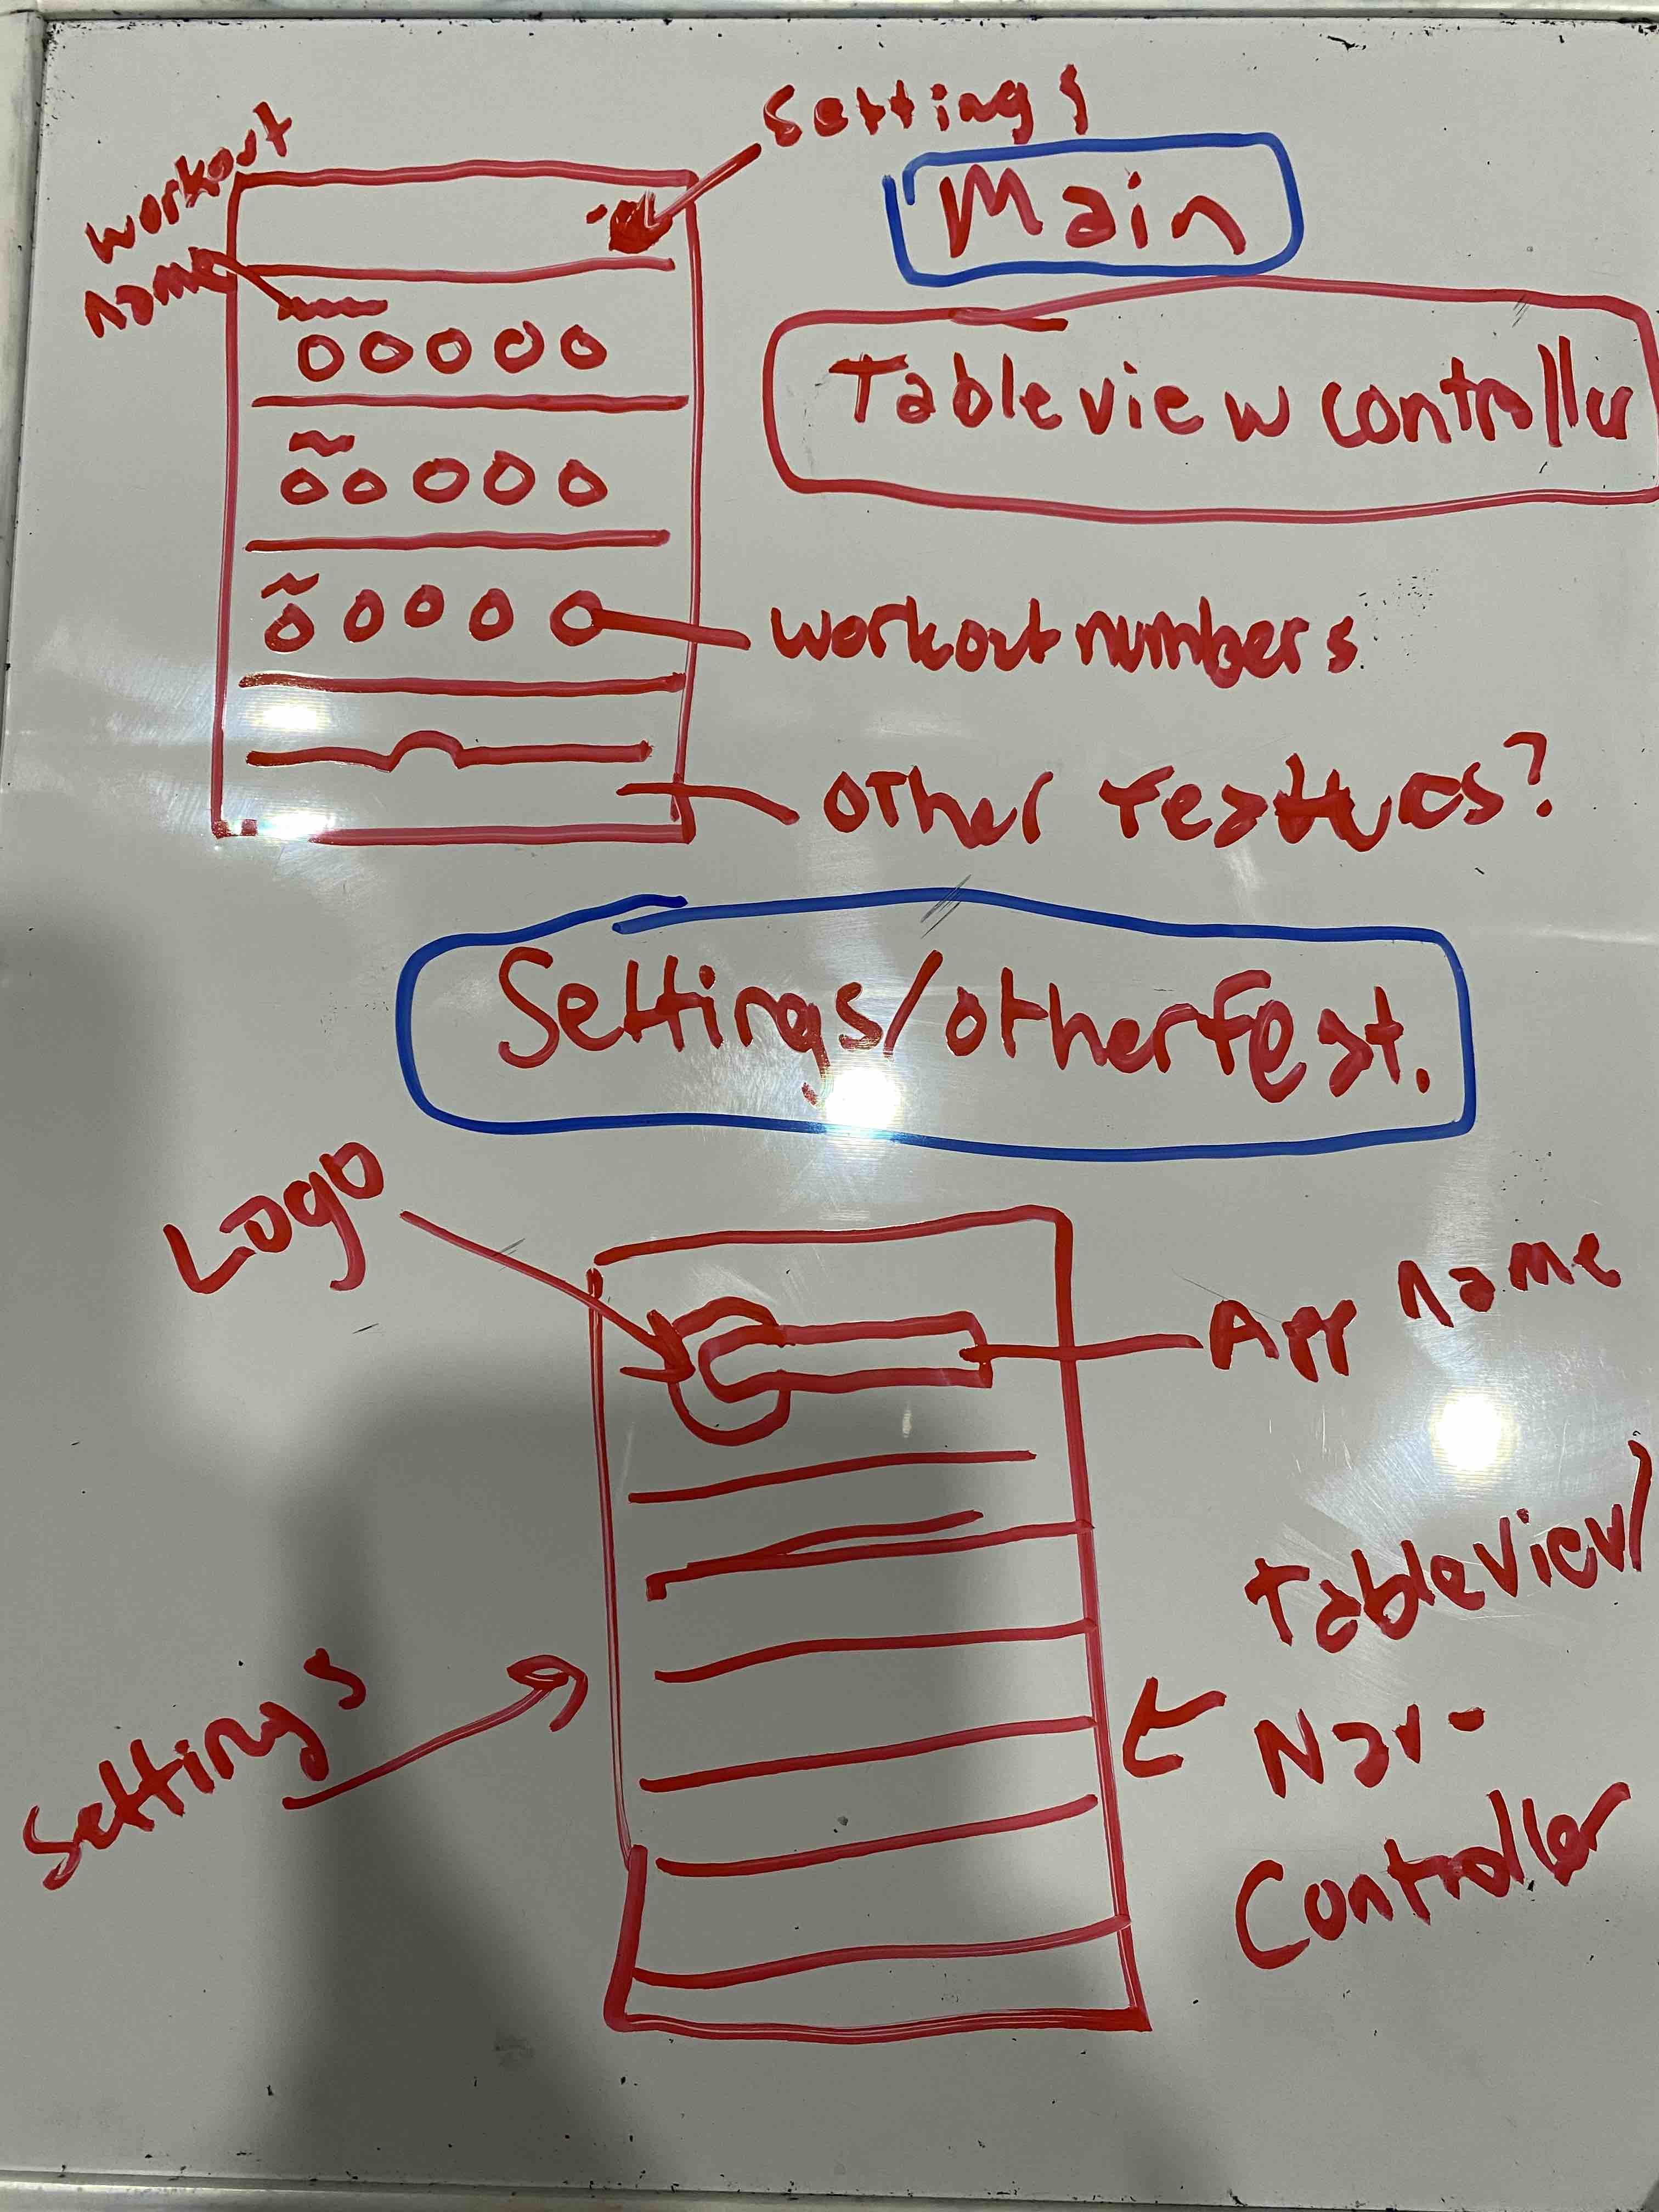 Settings
Workout
name
Main
Tableview controller
workout numbers
other features?
Settings/other feat.
Logo
App name
Tableview/
Nav-
Controller
Settings